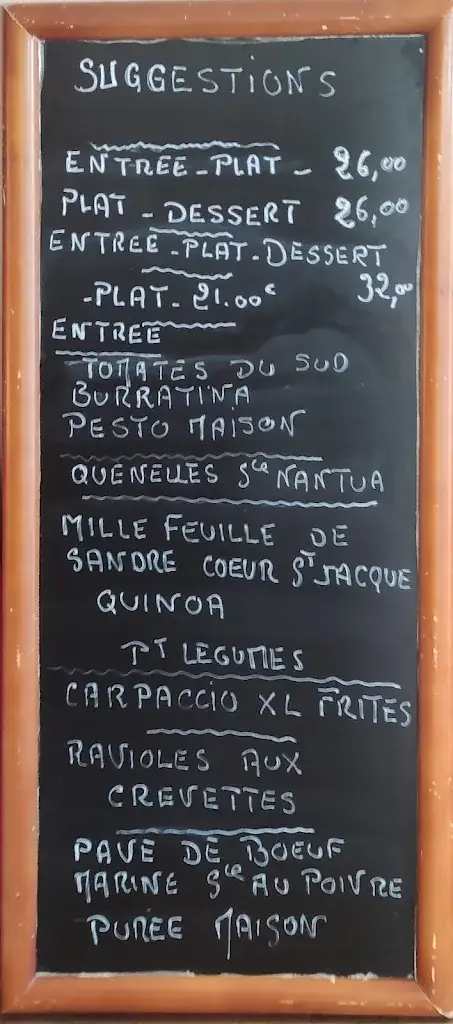 SUGGESTIONS
ENTREE - PLAT - 26,00
PLAT - DESSERT 26,00
ENTREE - PLAT - DESSERT
32,00
- PLAT - 21.00€
ENTREE
TOMATES DU SUD
BURRATINA
PESTO MAISON
QUENELLES Sce NANTUA
MILLE FEUILLE DE
SANDRE COEUR ST JACQUE
QUINOA
PT LEGUMES
CARPACCIO XL FRITES
RAVIOLES AUX
CREVETTES
PAVE DE BOEUF
MARINE Sce AU POIVRE
PUREE MAISON